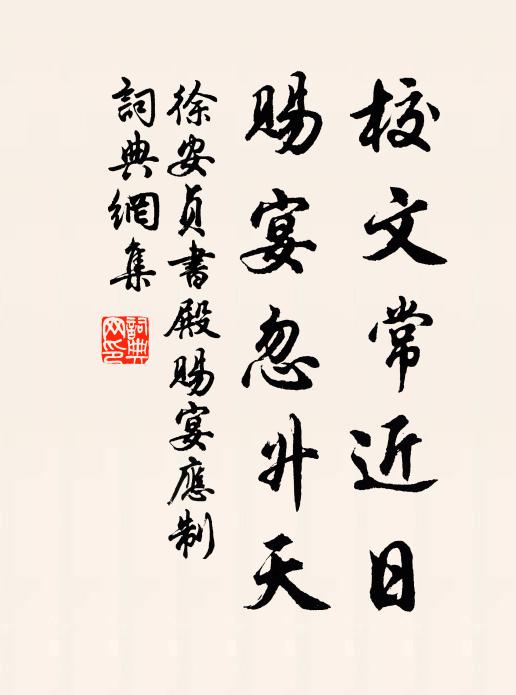 校文常近日
賜宴忽升天
徐安貞書殿賜宴應制
詞典網集
詞典網印